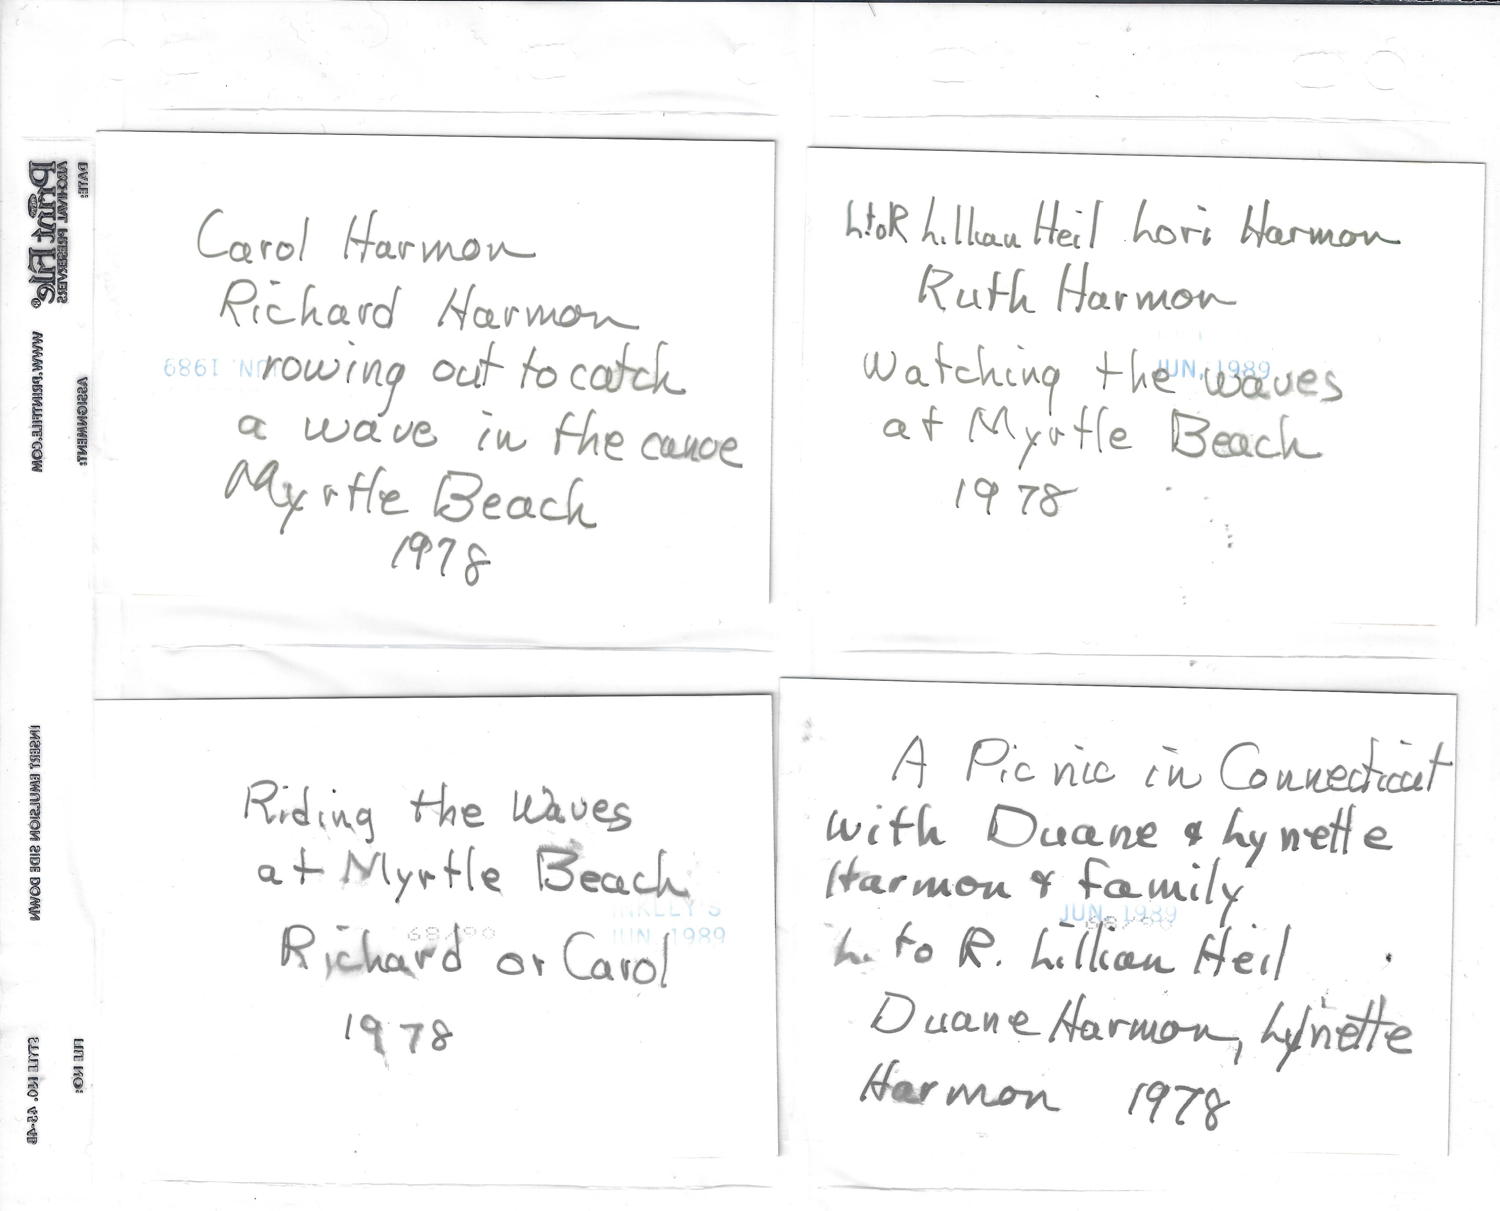 Carol Harmon
Richard Harmon
rowing out to catch
a wave in the canoe
Myrtle Beach
1978
JUN. 1989
L to R Lillian Heil Lori Harmon
Ruth Harmon
Watching the waves
at Myrtle Beach
1978
JUN. 1989
Riding the Waves
at Myrtle Beach
Richard or Carol
1978
JUN. 1989
A Picnic in Connecticut
with Duane & Lynette
Harmon & family
L. to R. Lillian Heil
Duane Harmon, Lynette
Harmon 1978
JUN. 1989
DATE:
ARCHIVAL PRESERVERS
PrintFile®
WWW.PRINTFILE.COM
ASSIGNMENT:
INSERT EMULSION SIDE DOWN
FILE NO:
STYLE NO. 45-4B